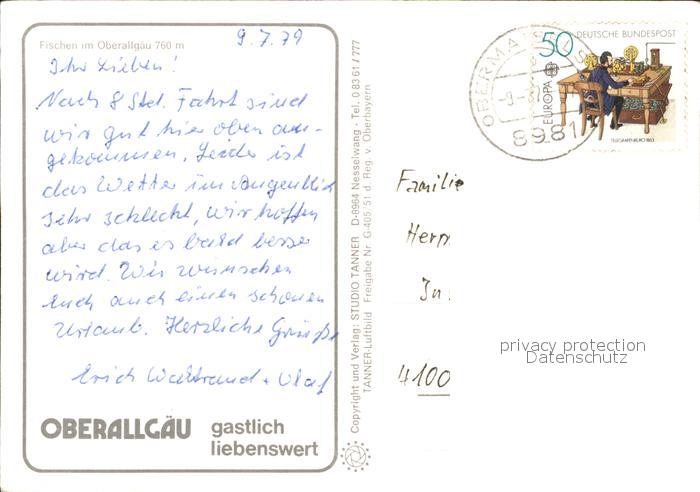 Fischen im Oberallgäu 760 m
9.7.79
Ihr Lieben!
Nach 8 Std. Fahrt sind
wir gut hier oben an-
gekommen. Leider ist
das Wetter im Augenblick
sehr schlecht, wir hoffen
aber das es bald besser
wird. Wir wünschen
Euch auch einen schönen
Urlaub. Herzliche Grüße
Erich Waltraud + Olaf
OBERALLGÄU gastlich
liebenswert
Copyright und Verlag: STUDIO TANNER D-8964 Nesselwang · Tel. 0 83 61 / 777
TANNER-Luftbild Freigabe Nr. G-405/51 d. Reg. v. Oberbayern
50 DEUTSCHE BUNDESPOST
EUROPA CEPT
TELEGRAFENBÜRO 1863
OBERMA
8981
Familie
Herm
In
4100
privacy protection
Datenschutz